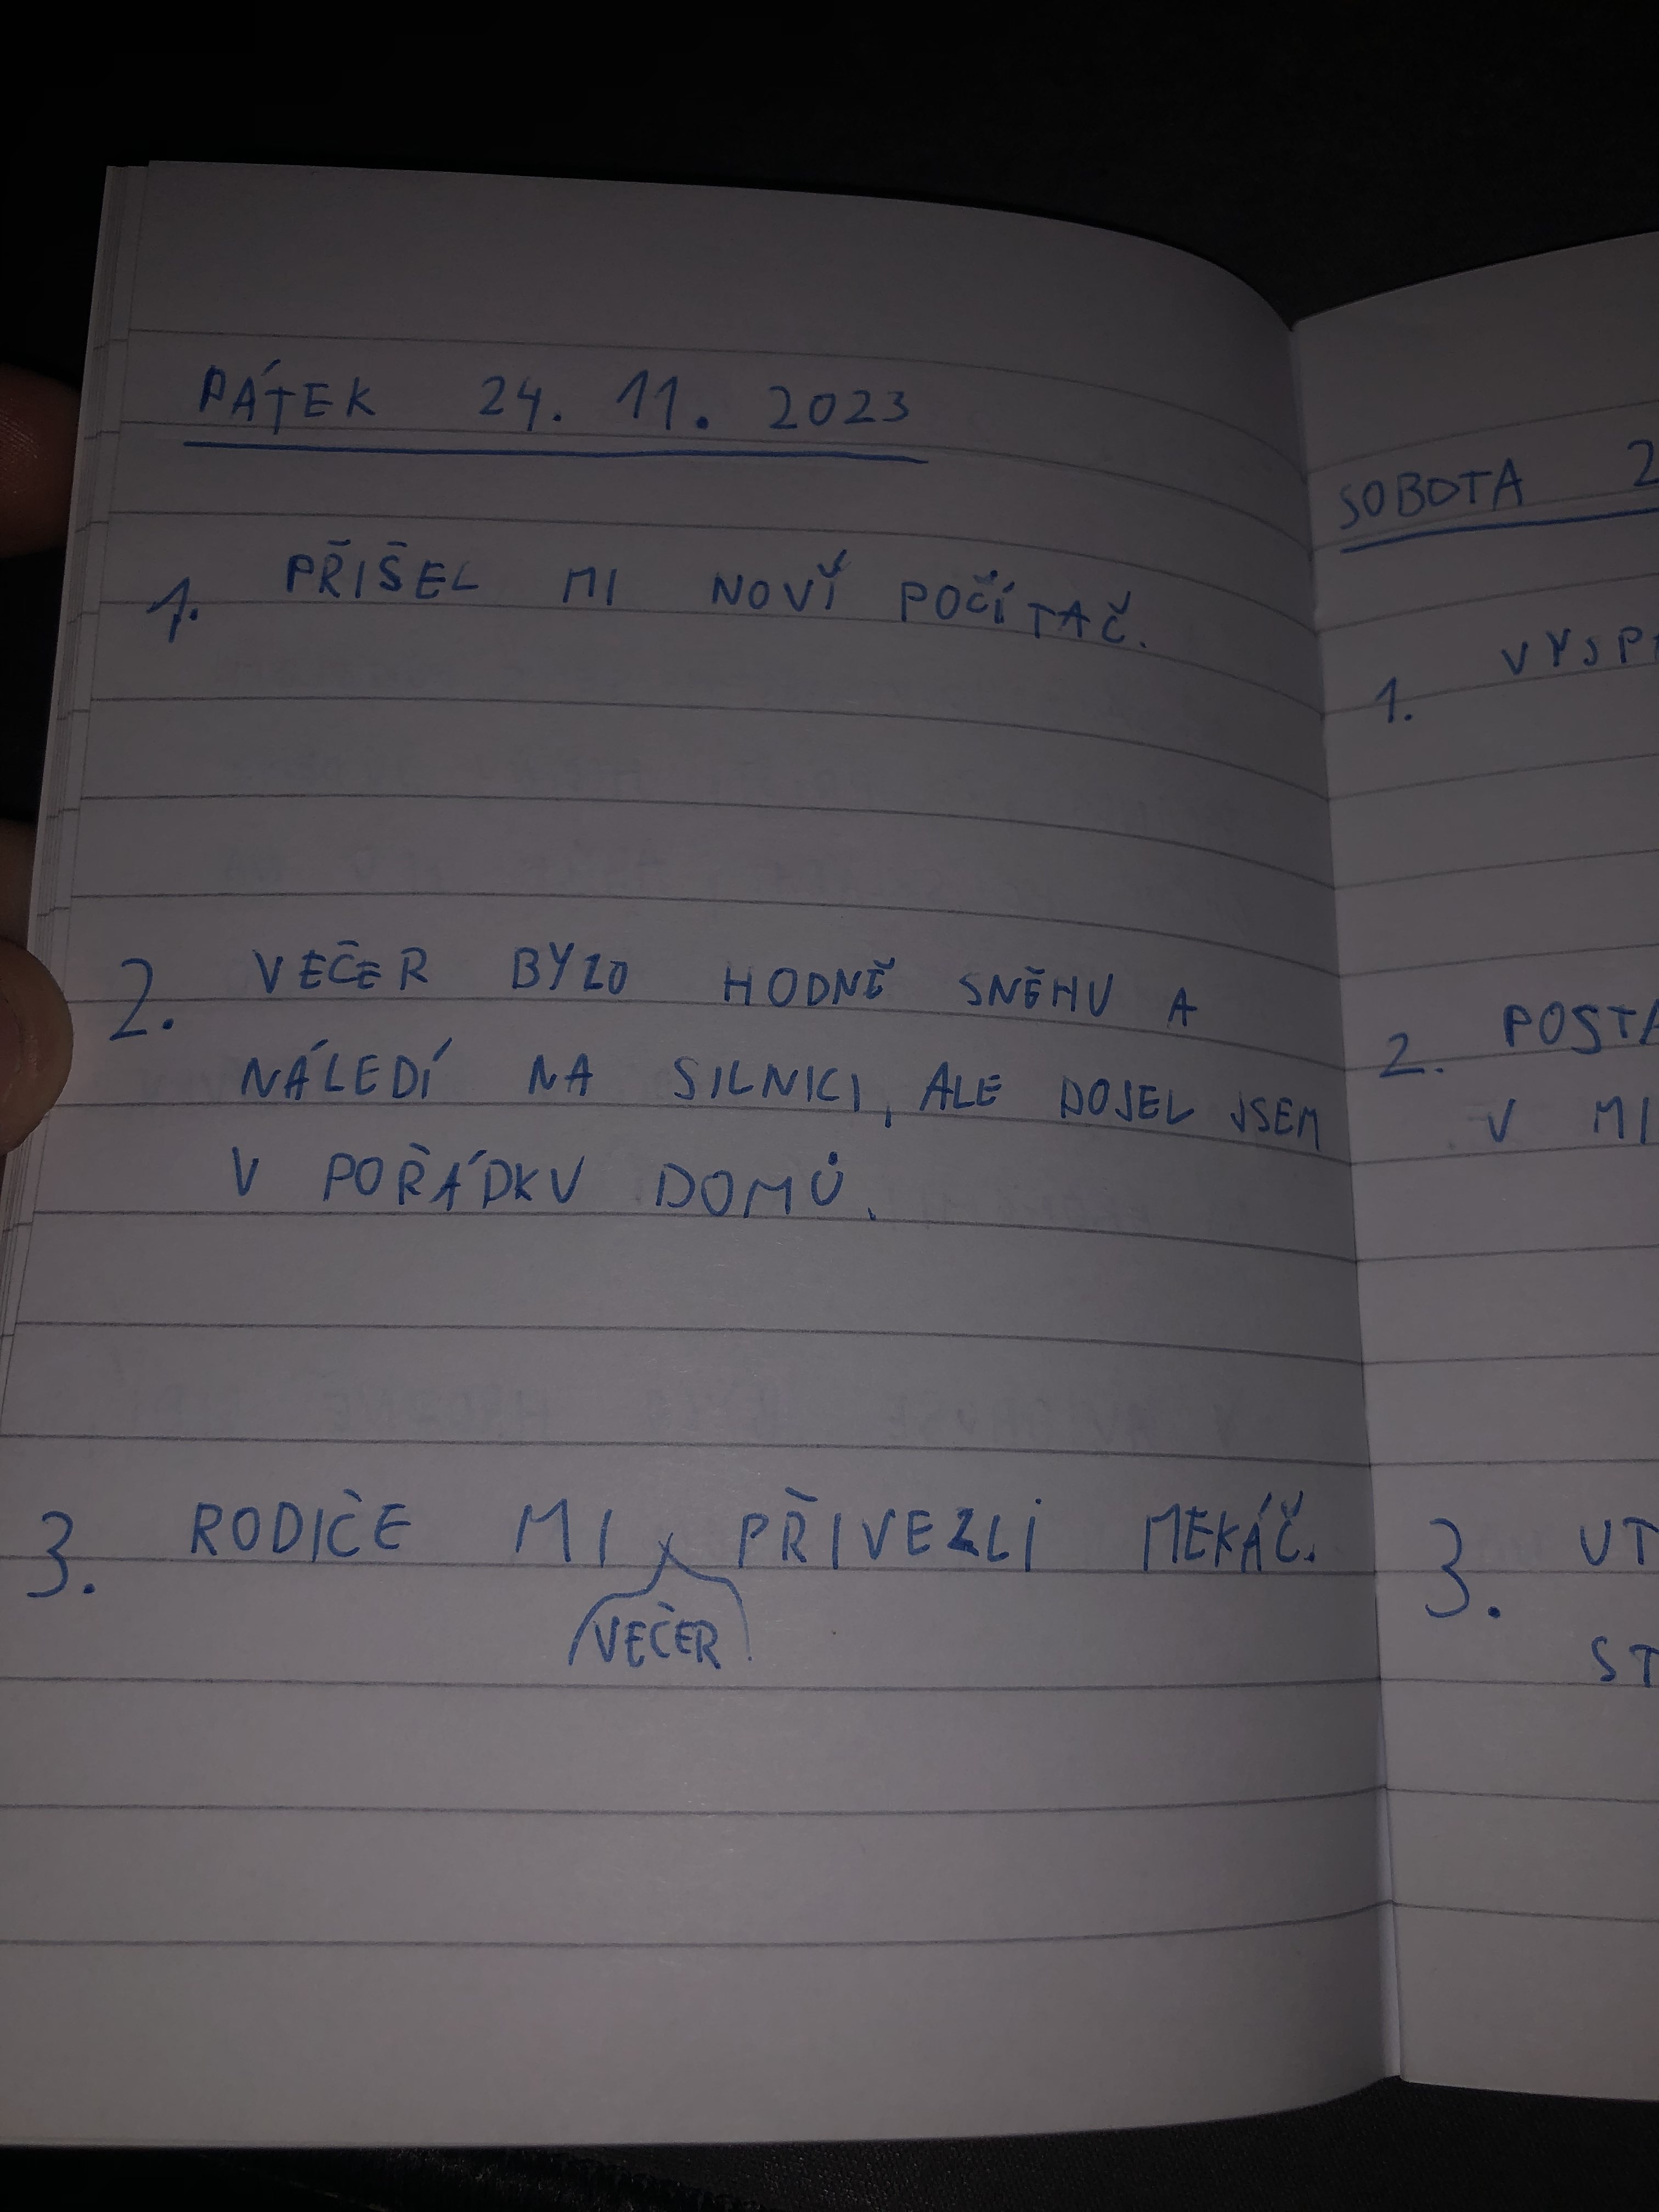 PÁTEK 24. 11. 2023
1. PŘIŠEL MI NOVÝ POČÍTAČ.
2. VEČER BYLO HODNĚ SNĚHU A
NÁLEDÍ NA SILNICI, ALE DOJEL JSEM
V POŘÁDKU DOMŮ.
3. RODIČE MI PŘIVEZLI MEKÁČ.
VEČER
SOBOTA 2
1.
2.
V
3.